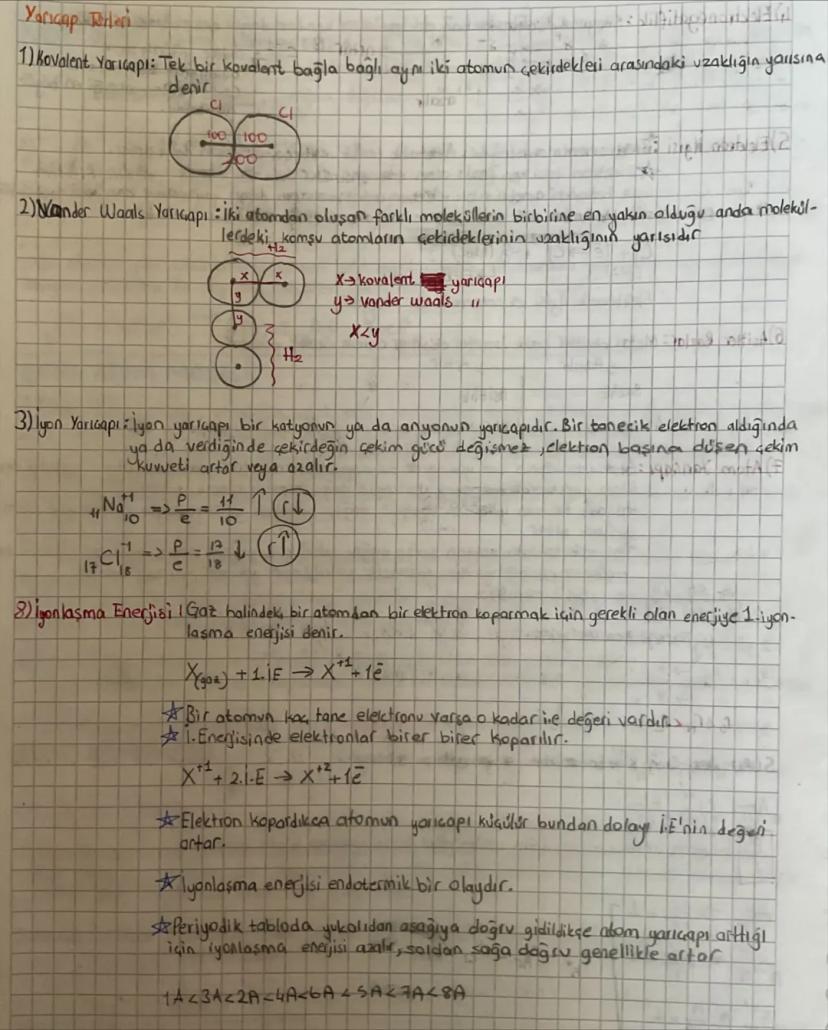 Yarıçap Türleri
1) Kovalent Yarıçapı: Tek bir kovalent bağla bağlı aynı iki atomun çekirdekleri arasındaki uzaklığın yarısına
denir
Cl Cl
100 100
200
2) Vander Waals Yarıçapı: iki atomdan oluşan farklı moleküllerin birbirine en yakın olduğu anda molekül-
lerdeki komşu atomların çekirdeklerinin uzaklığının yarısıdır
H2
x x
x→kovalent yarıçapı
y
y→ vander waals "
y
x<y
H2
3) İyon Yarıçapı: İyon yarıçapı bir katyonun ya da anyonun yarıçapıdır. Bir tanecik elektron aldığında
ya da verdiğinde çekirdeğin çekim gücü değişmez, elektron başına düşen çekim
kuvveti artar veya azalır.
11Na+1 10 => p/e = 11/10 ↑ r↓
17Cl-1 18 => p/e = 17/18 ↓ r↑
8) İyonlaşma Enerjisi: Gaz halindeki bir atomdan bir elektron koparmak için gerekli olan enerjiye 1. iyon-
laşma enerjisi denir.
X(gaz) + 1.İE → X+1 + 1ē
☆ Bir atomun kaç tane elektronu varsa o kadar i.e değeri vardır.
☆ i. Enerjisinde elektronlar birer birer koparılır.
X+1 + 2.İ.E → X+2 + 1ē
☆ Elektron kopardıkça atomun yarıçapı küçülür bundan dolayı İ.E'nin değeri
artar.
☆ İyonlaşma enerjisi endotermik bir olaydır.
☆ Periyodik tabloda yukarıdan aşağıya doğru gidildikçe atom yarıçapı arttığı
için iyonlaşma enerjisi azalır, soldan sağa doğru genellikle artar
1A<3A<2A<4A<6A<5A<7A<8A